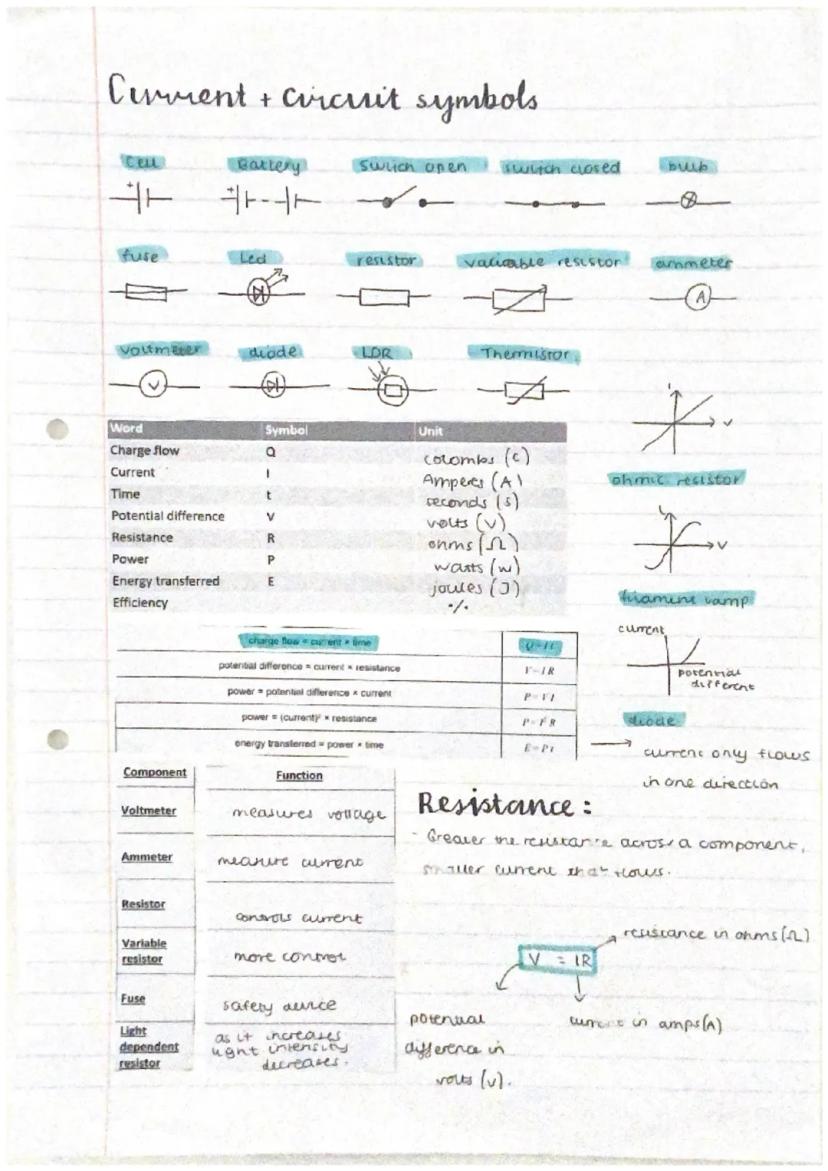 Current + circuit symbols
Cell Battery Switch open switch closed bulb
+ +
fuse Led resistor variable resistor ammeter
A
voltmeter diode LDR Thermistor
V
I V
Word Symbol Unit
Charge flow Q colombs (c)
Current I Amperes (A)
Time t seconds (s)
Potential difference V volts (v)
Resistance R ohms (Ω)
Power P watts (w)
Energy transferred E joules (J)
Efficiency %
ohmic resistor
V
filament lamp
current
potential
different
diode
→ current only flows
in one direction
charge flow = current × time Q = I t
potential difference = current × resistance V = I R
power = potential difference × current P = V I
power = (current)² × resistance P = I² R
energy transferred = power × time E = P t
Component Function
Voltmeter measures voltage
Ammeter measure current
Resistor controls current
Variable
resistor more control
Fuse safety device
Light
dependent
resistor
as it increases
light intensity
decreases.
Resistance:
- Greater the resistance across a component,
smaller current that flows.
resistance in ohms (Ω)
V = IR
current in amps (A)
potential
difference in
volts (v).